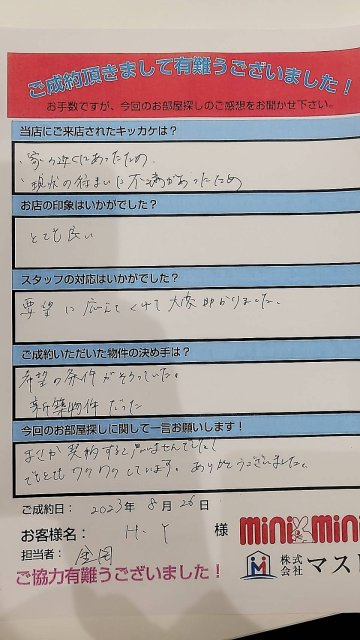 ご成約頂きまして有難うございました！
お手数ですが、今回のお部屋探しのご感想をお聞かせ下さい。
当店にご来店されたキッカケは？
・家の近くにあったため
・現状の住まいに不満があったため
お店の印象はいかがでした？
とても良い
スタッフの対応はいかがでした？
要望に応えてくれて大変助かりました。
ご成約いただいた物件の決め手は？
希望の条件がそろっていた。
新築物件だった
今回のお部屋探しに関して一言お願いします！
まさか契約すると思いませんでした！
でもとてもワクワクしています。ありがとうございました。
ご成約日： 2023年 8月 26日
お客様名： H.Y 様
担当者：
ご協力有難うございました！
mini mini
株式会社 マスト